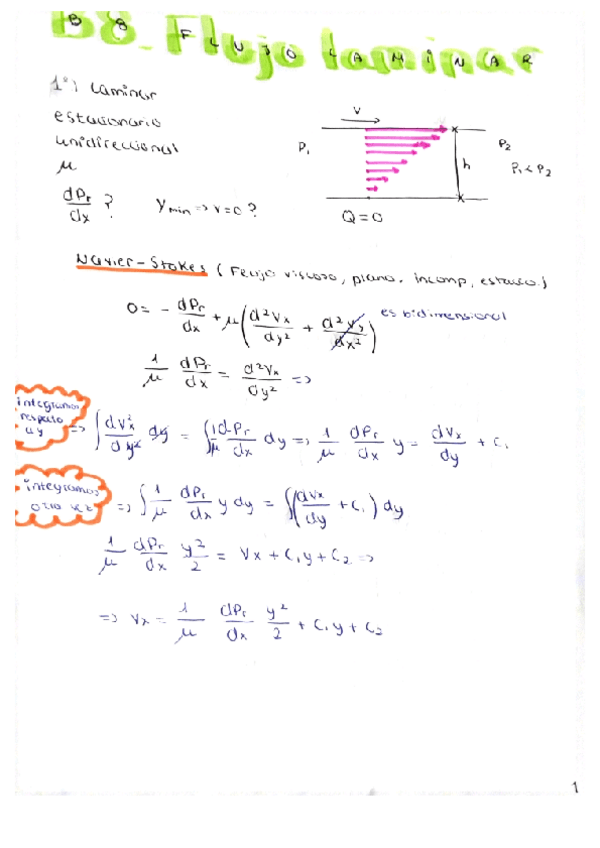 B8. Flujo laminar
B8 FLUJO LAMINAR
1º) Laminar
estacionario
unidireccional
μ
dPr/dx ?
Ymin => v=0?
V
P1
P2
h
P1 < P2
Q=0
Navier-Stokes (Flujo viscoso, plano, incomp, estacio.)
0 = - dPr/dx + μ(d²Vx/dy² + d²Vy/dx²) es bidimensional
1/μ dPr/dx = d²Vx/dy² =>
integramos respecto a y
=> ∫ dVx²/dy² dy = ∫ 1/μ dPr/dx dy => 1/μ dPr/dx y = dVx/dy + C1
integramos otra vez
=> ∫ 1/μ dPr/dx y dy = ∫(dVx/dy + C1) dy
1/μ dPr/dx y²/2 = Vx + C1y + C2 =>
=> Vx = 1/μ dPr/dx y²/2 + C1y + C2
1